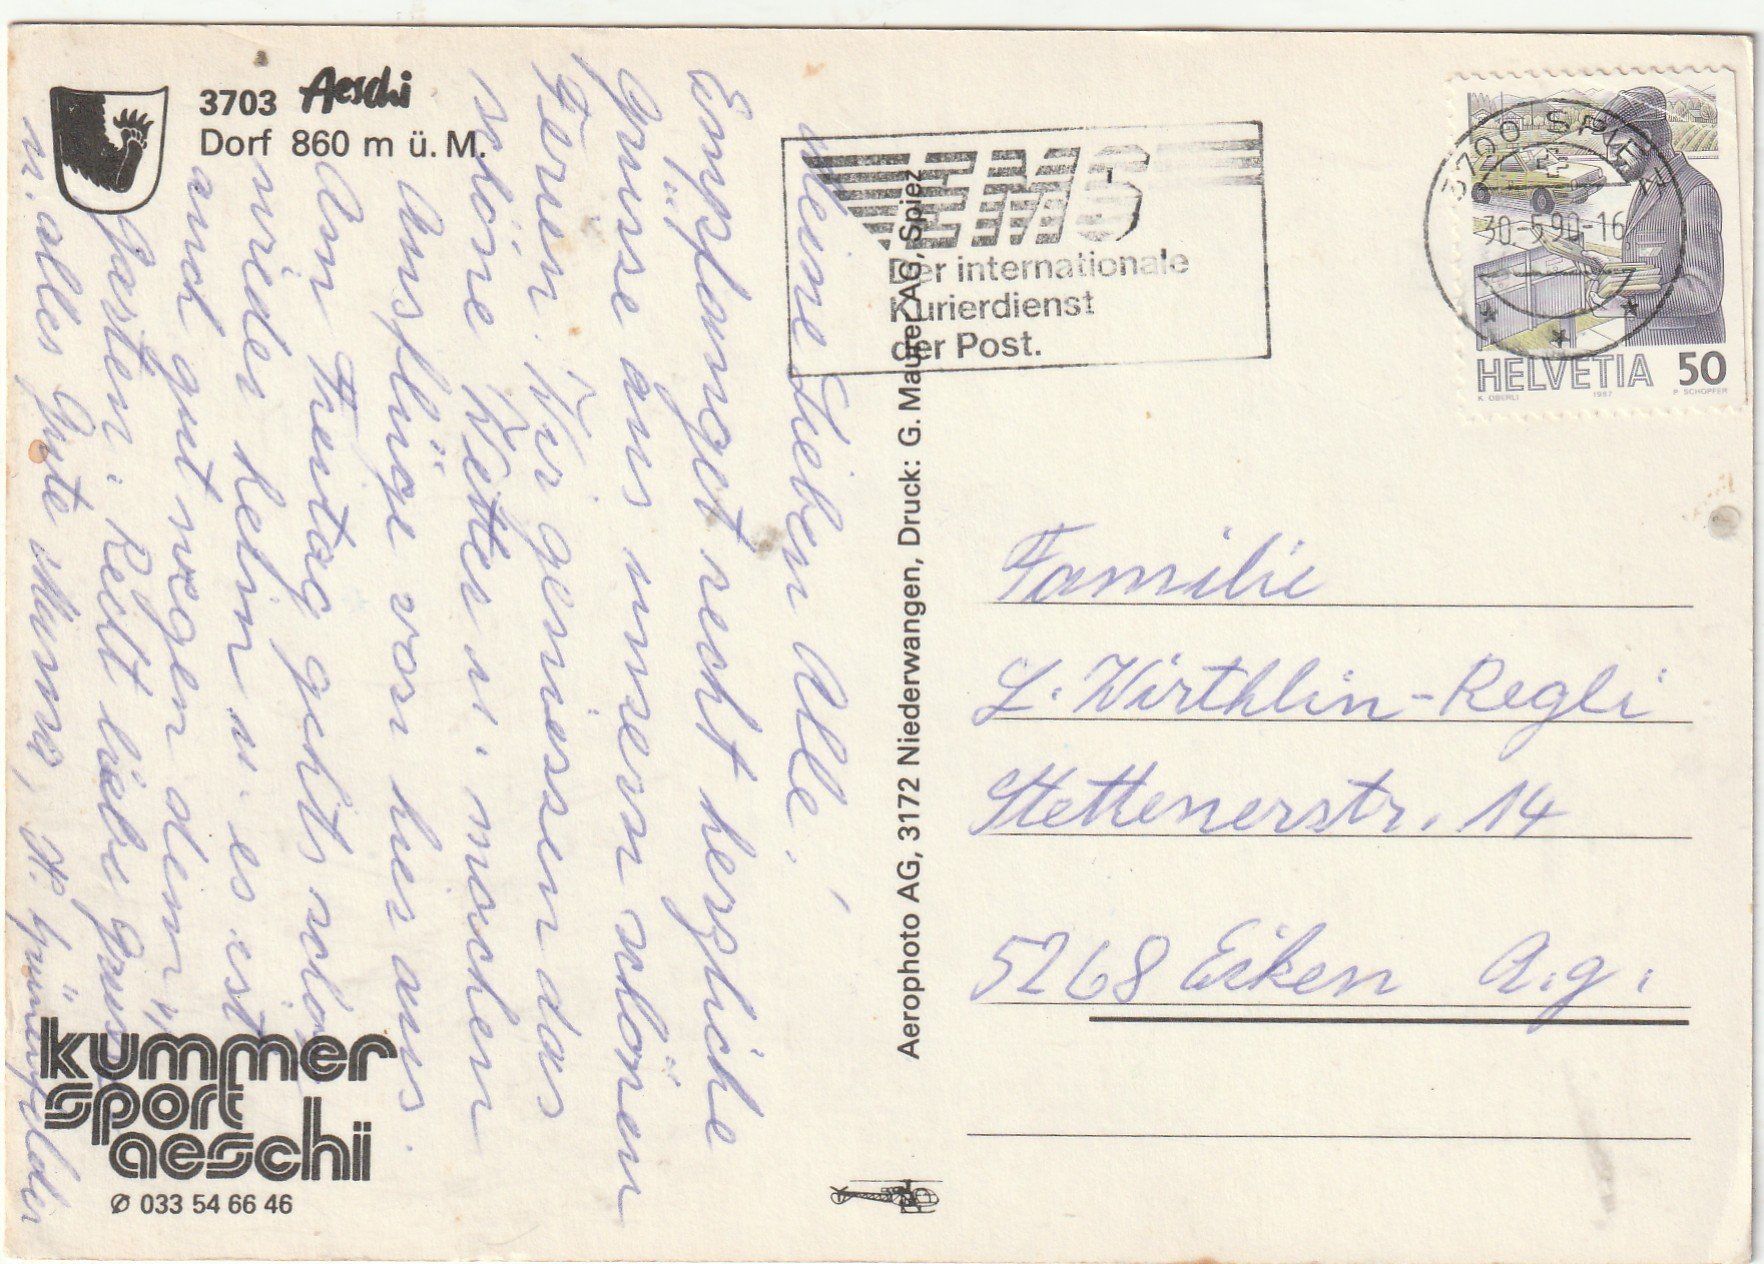 3703 Aeschi
Dorf 860 m ü. M.
Meine Lieben Alle!
Empfanget recht herzliche
Grüsse aus unsern schönen
Ferien. Wir geniessen das
schöne Wetter u. machen
Ausflüge von hier aus.
Am Freitag gehts schon
wieder heim u. es ist
auch gut wegen dem
Garten. Recht liebe Grüsse
u. alles Gute
kummer
sport
aeschi
Ø 033 54 66 46
Aerophoto AG, 3172 Niederwangen, Druck: G. Maurer AG, Spiez
EMS
Der internationale
Kurierdienst
der Post.
3700 SPIEZ
30.-5.90-16
HELVETIA 50
K. OBERLI 1987 P. SCHOPFER
Familie
L. Wirthlin-Regli
Stettenerstr. 14
5268 Eiken A.g.